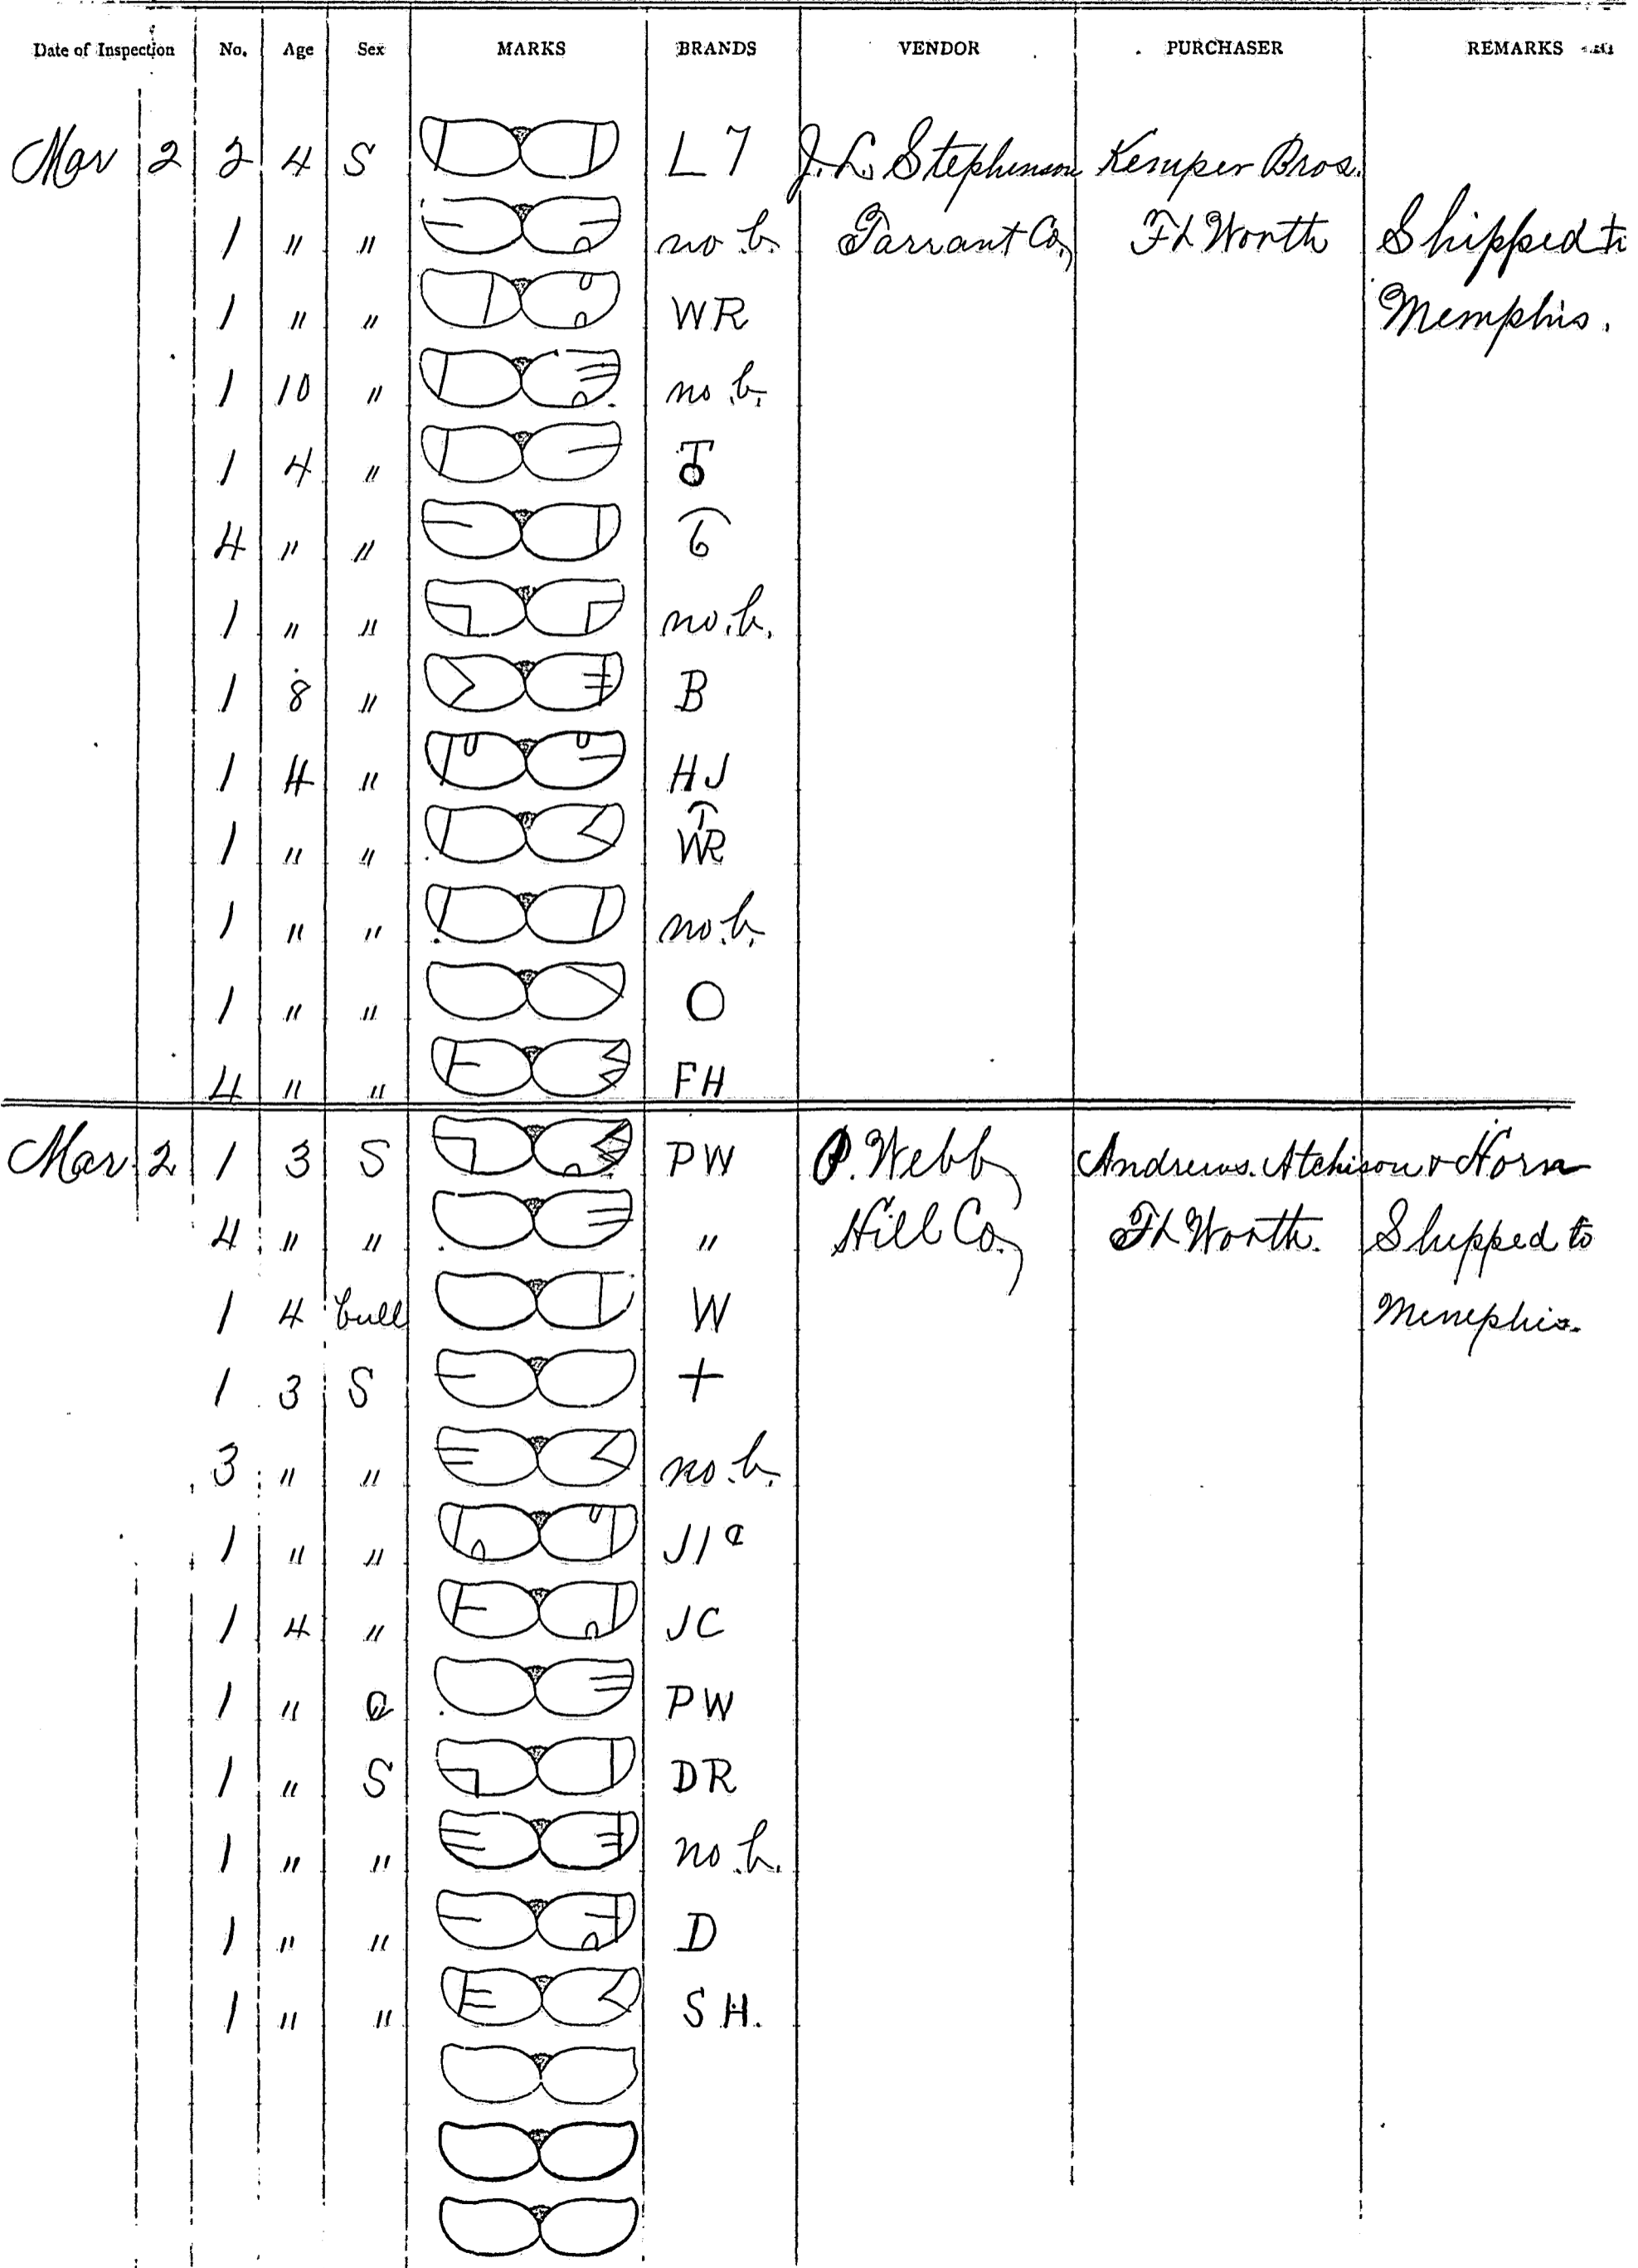 Date of Inspection No. Age Sex MARKS BRANDS VENDOR PURCHASER REMARKS
Mar 2 2 4 S L 7 J. L. Stephenson Kemper Bros.
1 " " no b. Tarrant Co, Ft Worth Shipped to
1 " " WR Memphis.
1 10 " no b.
1 4 "
4 " " 6
1 " " no. b.
1 8 " B
1 4 " HJ
1 " " WR
1 " " no. b.
1 " " O
4 " " FH
Mar 2 1 3 S PW P. Webb Andrews. Atchison & Horn
4 " " " Hill Co, Ft Worth. Shipped to
1 4 bull W Memphis.
1 3 S +
3 " " no. b.
1 " "
1 4 " JC
1 " PW
1 " S DR
1 " " no b.
1 " " D
1 " " S H.